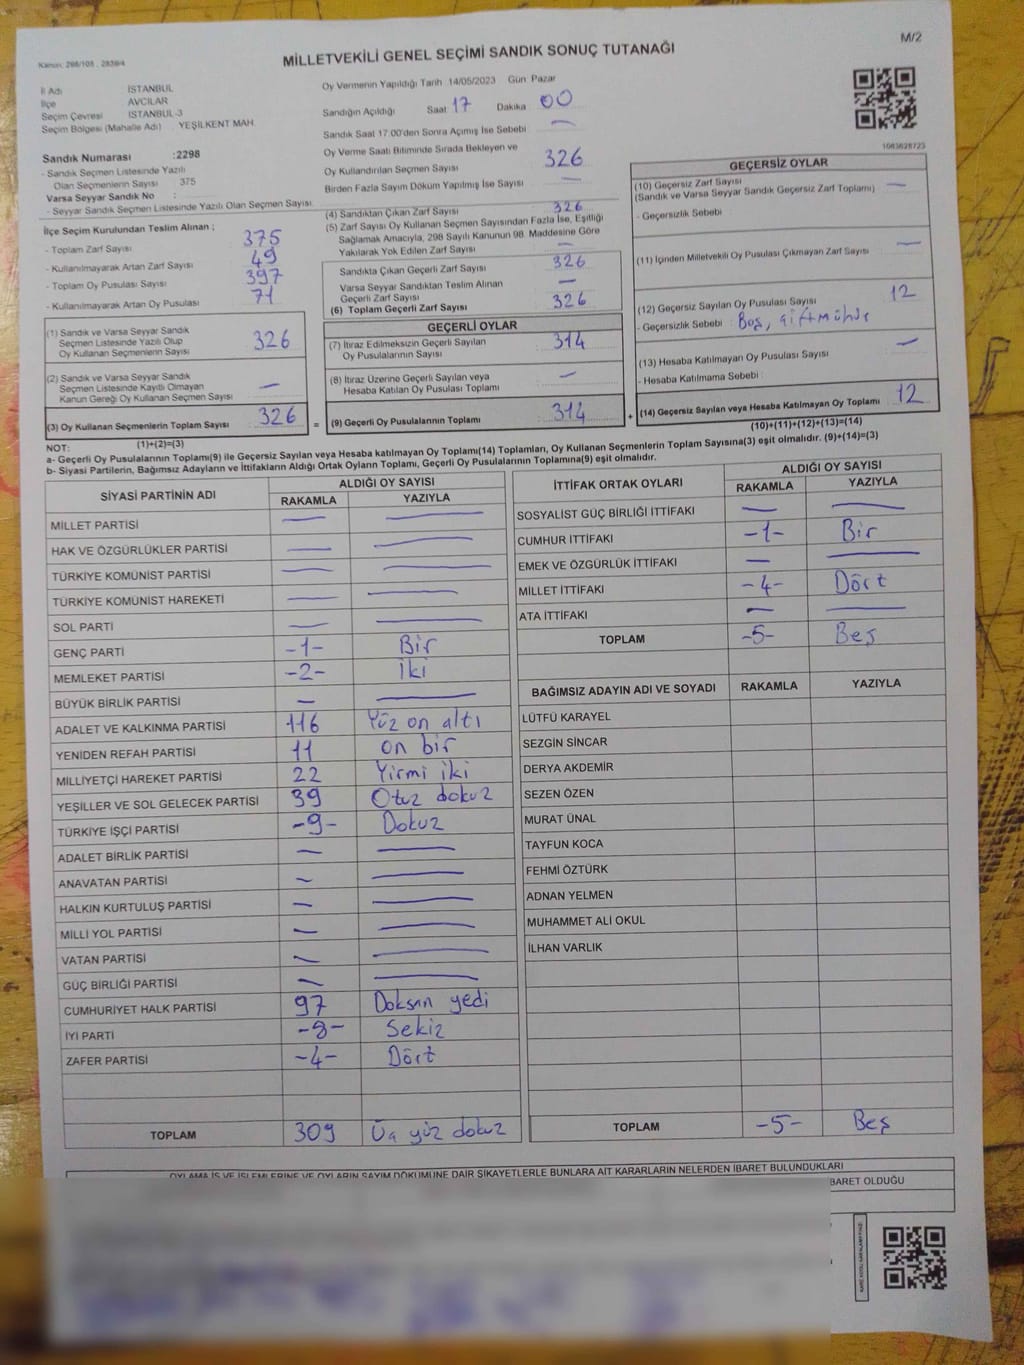 Kanun: 298/105 , 2839/4
MİLLETVEKİLİ GENEL SEÇİMİ SANDIK SONUÇ TUTANAĞI
M/2
İl Adı İSTANBUL
İlçe AVCILAR
Seçim Çevresi İSTANBUL-3
Seçim Bölgesi (Mahalle Adı) : YEŞİLKENT MAH.
Sandık Numarası :2298
- Sandık Seçmen Listesinde Yazılı
Olan Seçmenlerin Sayısı : 375
Varsa Seyyar Sandık No :
- Seyyar Sandık Seçmen Listesinde Yazılı Olan Seçmen Sayısı:
Oy Vermenin Yapıldığı Tarih 14/05/2023 Gün Pazar
Sandığın Açıldığı Saat 17 Dakika 00
Sandık Saat 17.00'den Sonra Açılmış İse Sebebi : —
Oy Verme Saati Bitiminde Sırada Bekleyen ve
Oy Kullandırılan Seçmen Sayısı : 326
Birden Fazla Sayım Döküm Yapılmış İse Sayısı : —
1083628723
İlçe Seçim Kurulundan Teslim Alınan ;
- Toplam Zarf Sayısı : 375
- Kullanılmayarak Artan Zarf Sayısı : 49
- Toplam Oy Pusulası Sayısı : 397
- Kullanılmayarak Artan Oy Pusulası : 71
(1) Sandık ve Varsa Seyyar Sandık
Seçmen Listesinde Yazılı Olup
Oy Kullanan Seçmenlerin Sayısı : 326
(2) Sandık ve Varsa Seyyar Sandık
Seçmen Listesinde Kayıtlı Olmayan
Kanun Gereği Oy Kullanan Seçmen Sayısı : —
(3) Oy Kullanan Seçmenlerin Toplam Sayısı : 326
(1)+(2)=(3)
(4) Sandıktan Çıkan Zarf Sayısı : 326
(5) Zarf Sayısı Oy Kullanan Seçmen Sayısından Fazla İse, Eşitliği
Sağlamak Amacıyla, 298 Sayılı Kanunun 98. Maddesine Göre
Yakılarak Yok Edilen Zarf Sayısı : —
Sandıkta Çıkan Geçerli Zarf Sayısı : 326
Varsa Seyyar Sandıktan Teslim Alınan
Geçerli Zarf Sayısı : —
(6) Toplam Geçerli Zarf Sayısı : 326
GEÇERLİ OYLAR
(7) İtiraz Edilmeksizin Geçerli Sayılan
Oy Pusulalarının Sayısı : 314
(8) İtiraz Üzerine Geçerli Sayılan veya
Hesaba Katılan Oy Pusulası Toplamı : —
= (9) Geçerli Oy Pusulalarının Toplamı : 314
GEÇERSİZ OYLAR
(10) Geçersiz Zarf Sayısı : —
(Sandık ve Varsa Seyyar Sandık Geçersiz Zarf Toplamı)
- Geçersizlik Sebebi :
(11) İçinden Milletvekili Oy Pusulası Çıkmayan Zarf Sayısı : —
(12) Geçersiz Sayılan Oy Pusulası Sayısı : 12
- Geçersizlik Sebebi : Boş, çift mühür
(13) Hesaba Katılmayan Oy Pusulası Sayısı : —
- Hesaba Katılmama Sebebi :
+ (14) Geçersiz Sayılan veya Hesaba Katılmayan Oy Toplamı : 12
(10)+(11)+(12)+(13)=(14)
NOT:
a- Geçerli Oy Pusulalarının Toplamı(9) ile Geçersiz Sayılan veya Hesaba katılmayan Oy Toplamı(14) Toplamları, Oy Kullanan Seçmenlerin Toplam Sayısına(3) eşit olmalıdır. (9)+(14)=(3)
b- Siyasi Partilerin, Bağımsız Adayların ve İttifakların Aldığı Ortak Oyların Toplamı, Geçerli Oy Pusulalarının Toplamına(9) eşit olmalıdır.
SİYASİ PARTİNİN ADI ALDIĞI OY SAYISI
RAKAMLA YAZIYLA
MİLLET PARTİSİ — —
HAK VE ÖZGÜRLÜKLER PARTİSİ — —
TÜRKİYE KOMÜNİST PARTİSİ — —
TÜRKİYE KOMÜNİST HAREKETİ — —
SOL PARTİ — —
GENÇ PARTİ -1- Bir
MEMLEKET PARTİSİ -2- İki
BÜYÜK BİRLİK PARTİSİ — —
ADALET VE KALKINMA PARTİSİ 116 Yüz on altı
YENİDEN REFAH PARTİSİ 11 on bir
MİLLİYETÇİ HAREKET PARTİSİ 22 Yirmi iki
YEŞİLLER VE SOL GELECEK PARTİSİ 39 Otuz dokuz
TÜRKİYE İŞÇİ PARTİSİ -9- Dokuz
ADALET BİRLİK PARTİSİ — —
ANAVATAN PARTİSİ — —
HALKIN KURTULUŞ PARTİSİ — —
MİLLİ YOL PARTİSİ — —
VATAN PARTİSİ — —
GÜÇ BİRLİĞİ PARTİSİ — —
CUMHURİYET HALK PARTİSİ 97 Doksan yedi
İYİ PARTİ -8- Sekiz
ZAFER PARTİSİ -4- Dört
TOPLAM 309 Üç yüz dokuz
İTTİFAK ORTAK OYLARI ALDIĞI OY SAYISI
RAKAMLA YAZIYLA
SOSYALİST GÜÇ BİRLİĞİ İTTİFAKI — —
CUMHUR İTTİFAKI -1- Bir
EMEK VE ÖZGÜRLÜK İTTİFAKI — —
MİLLET İTTİFAKI -4- Dört
ATA İTTİFAKI — —
TOPLAM -5- Beş
BAĞIMSIZ ADAYIN ADI VE SOYADI RAKAMLA YAZIYLA
LÜTFÜ KARAYEL
SEZGİN SİNCAR
DERYA AKDEMİR
SEZEN ÖZEN
MURAT ÜNAL
TAYFUN KOCA
FEHMİ ÖZTÜRK
ADNAN YELMEN
MUHAMMET ALİ OKUL
İLHAN VARLIK
TOPLAM -5- Beş
OYLAMA İŞ VE İŞLEMLERİNE VE OYLARIN SAYIM DÖKÜMÜNE DAİR ŞİKAYETLERLE BUNLARA AİT KARARLARIN NELERDEN İBARET BULUNDUKLARI
BARET OLDUĞU